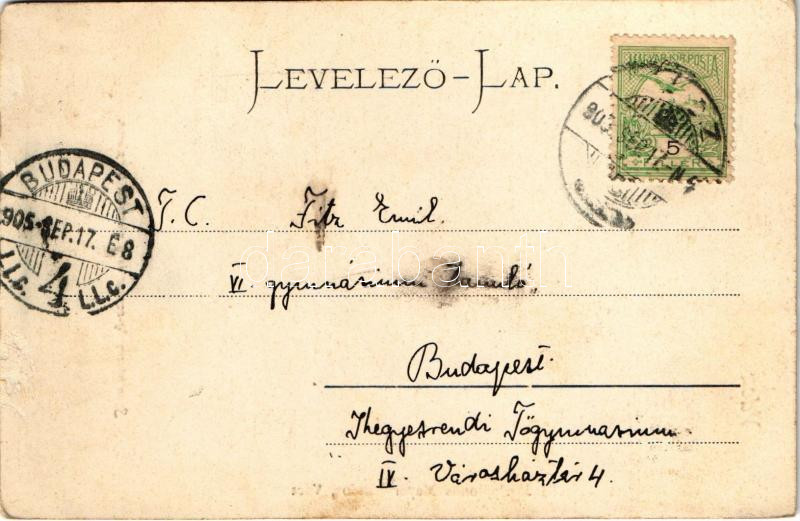 LEVELEZŐ-LAP.
MAGYAR KIR. POSTA
VÁCZ
5
BUDAPEST
905 SEP. 17. E 8
4
T. C. Fitz Emil.
VI gymnásium Tanuló,
Budapest.
Kegyesrendi Főgymnasium
IV. Városháztér 4.
darabanth